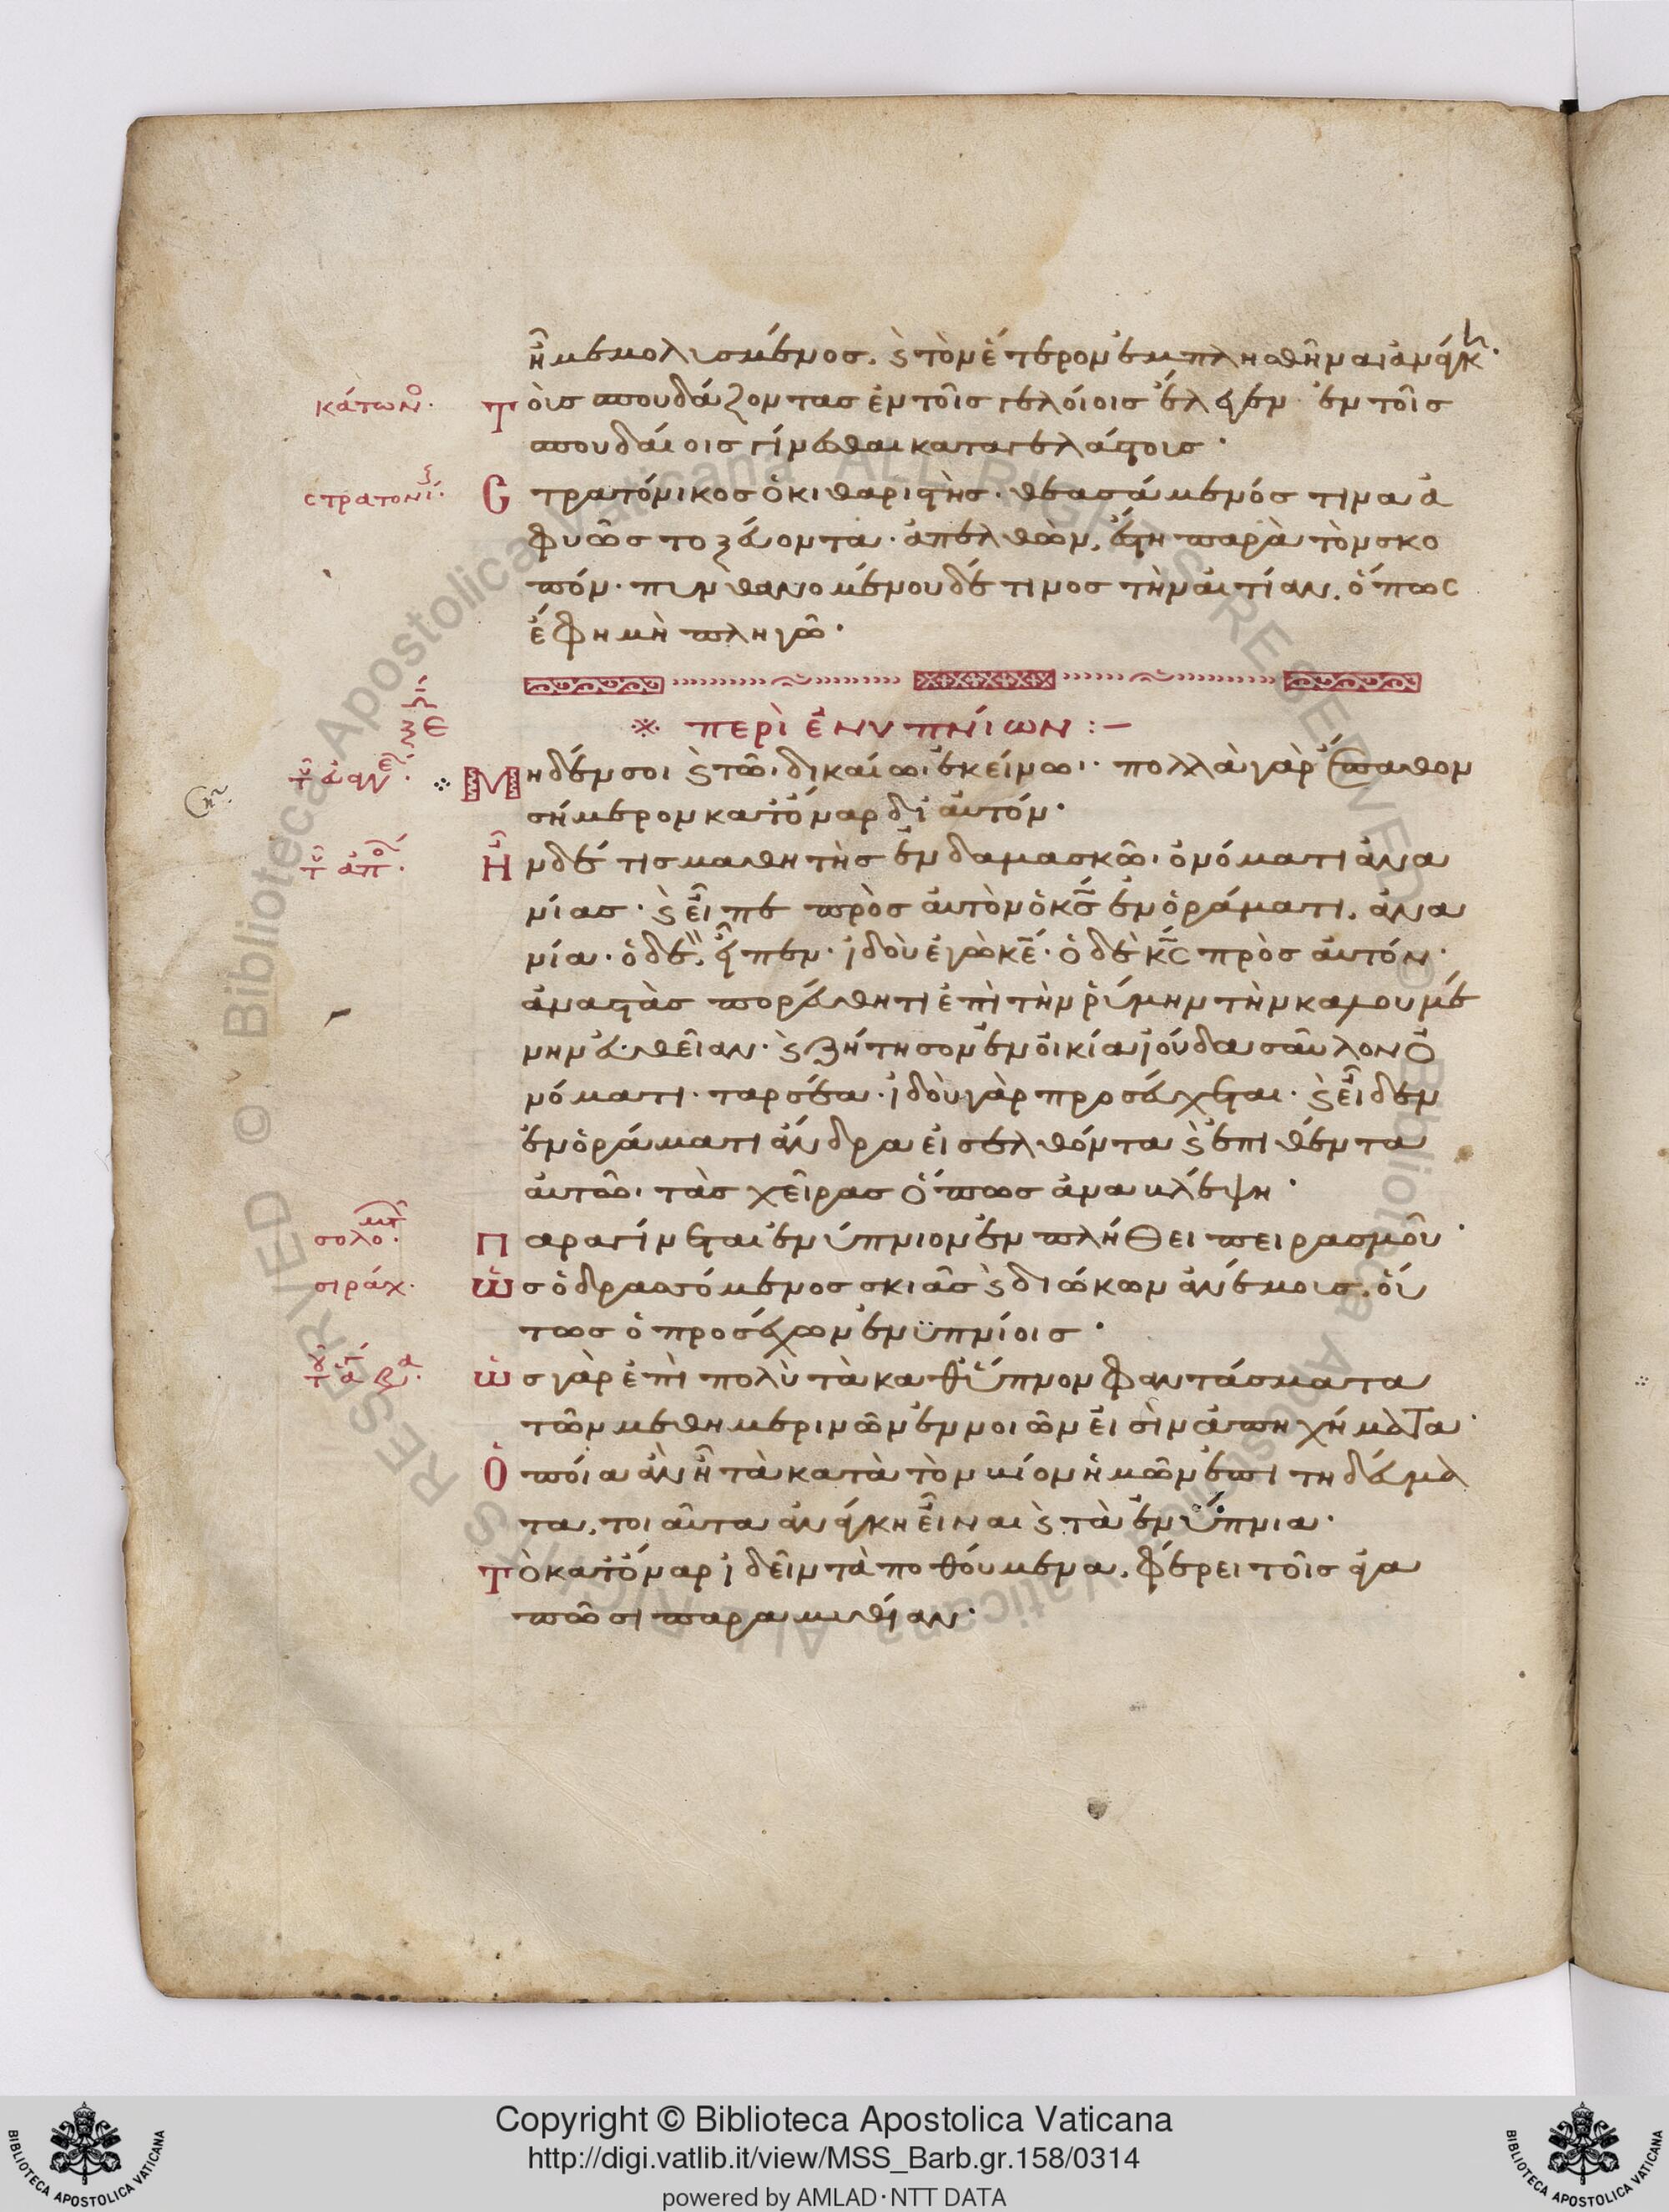 ἢ μεμολυσμένος. ϗ τὸν ἕτερον ἐμπλησθῆναι ἀνάγκη·
κάτων°·
Τοὺς σπουδάζοντας ἐν τοῖς γελοίοις ἔλεγεν ἐν τοῖς
σπουδαίοις γίνεσθαι καταγελάστοις·
στρατονί·
Cτρατόνικος ὁ κιθαριστὴς. θεασάμενός τινα ἀ
φυῶς τοξεύοντα. ἀπελθὼν, ἔστη παρὰ τὸν σκο
πόν. πυνθανομένου δέ τινος τὴν αἰτίαν, ὅπως
ἔφη μὴ πληγῶ·
※ περὶ ἐνυπνίων :—
ξε
τ εὐαγ·
Μηδέν σοι ϗ τῶ δικαίω ἐκείνω· πολλὰ γὰρ ἔπαθον
σήμερον κατόναρ δι αὐτόν·
τ ἀπο·
Ἦν δέ τις μαθητὴς ἐν δαμασκῶ· ὀνόματι ἀνα
νίας· ϗ εἶπε πρὸς αὐτὸν ὁ κς ἐν ὁράματι, ἀνα
νία· ὁ δὲ, εἶπεν· ἰδοὺ ἐγὼ κε· ὁ δὲ κς πρὸς αὐτόν·
ἀναστὰς πορεύθητι ἐπὶ τὴν ῥύμην τὴν καλουμέ
νην εὐθεῖαν· ϗ ζήτησον ἐν οἰκία ἰούδα σαῦλον ὀ
νόματι ταρσέα· ἰδοὺ γὰρ προσεύχεται· ϗ εἶδεν
ἐν ὁράματι ἄνδρα εἰσελθόντα ϗ ἐπιθέντα
αὐτῶ τὰς χεῖρας ὅπως ἀναβλέψη·
σολο·
Παραγίνεται ἐνύπνιον ἐν πλήθει πειρασμοῦ·
σιράχ·
Ὡς ὁ δρασσόμενος σκιᾶς ϗ διώκων ἀνέμοις, οὕ
τως ὁ προσέχων ἐνϋπνίοις·
Ὡς γὰρ ἐπὶ πολὺ τὰ καθ ὕπνον φαντάσματα
τῶν μεθημερινῶν ἐννοιῶν εἰσὶν ἀπηχήματα·
Ὁποῖα ἂν ἦ τὰ κατὰ τὸν βίον ἡμῶν ἐπιτηδεύμα
τα, τοιαῦτα ἀνάγκη εἶναι ϗ τὰ ἐνύπνια·
Τὸ κατόναρ ἰδεῖν τὰ ποθούμενα, φέρει τοῖς ἀγα
πῶσι παραμυθίαν·
Copyright © Biblioteca Apostolica Vaticana
http://digi.vatlib.it/view/MSS_Barb.gr.158/0314
powered by AMLAD·NTT DATA